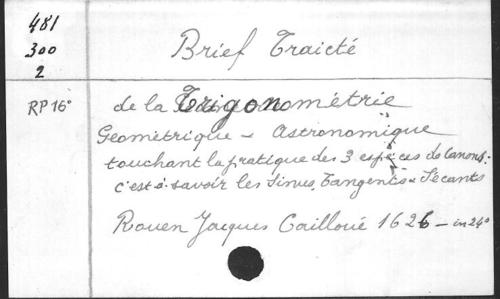 481
300
2
Brief Traicté
RP 16°
de la Trigonométrie
Geometrique - Astronomique
touchant la pratique des 3 espèces de Canons:
c'est à savoir les Sinus, Tangents & Sécants
Rouen Jacques Cailloué 1626 - in 24°